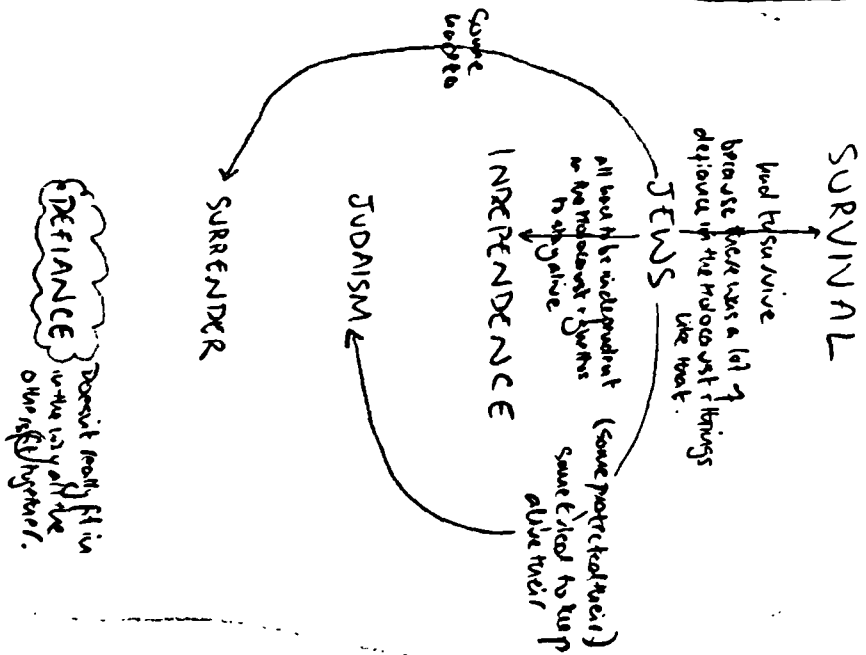 SURVIVAL
had to survive
because there was a lot of
defiance in the Holocaust + things
like that.
JEWS
some
had to
all had to be independent
in the Holocaust + ghettos
to stay alive
INDEPENDENCE
(some protected their)
some tried to keep
alive their
JUDAISM
SURRENDER
DEFIANCE
Doesn't really fit in
in the way all the
others fit together.